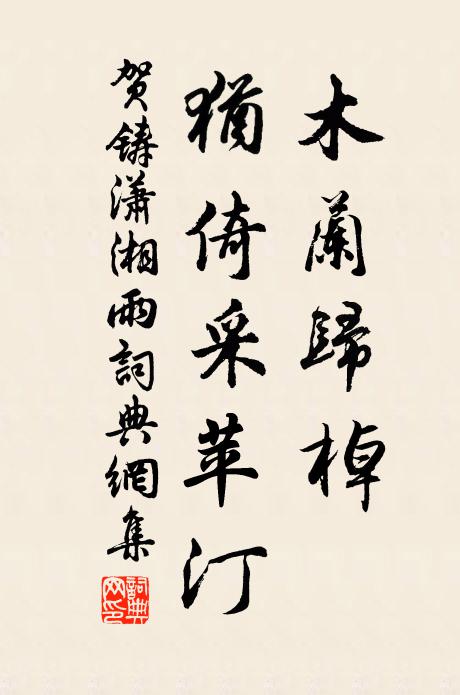 木蘭歸棹
猶倚采苹汀
賀鑄瀟湘雨詞典網集
詞典网印